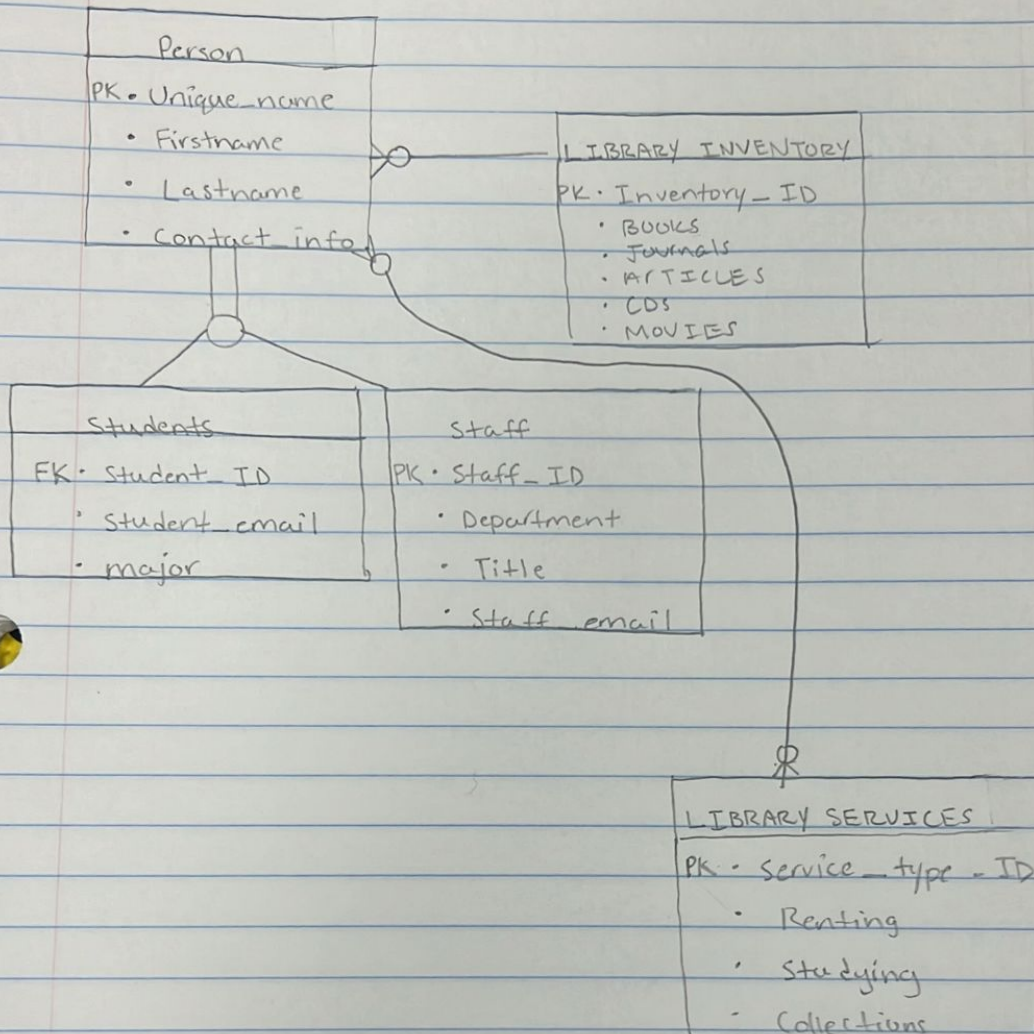 Person
PK • Unique_name
• Firstname
• Lastname
• Contact_info
LIBRARY INVENTORY
PK • Inventory_ID
• BOOKS
• Journals
• ARTICLES
• CDS
• MOVIES
Students
FK • Student_ID
• Student_email
• major
Staff
PK • Staff_ID
• Department
• Title
• Staff_email
LIBRARY SERVICES
PK • Service_type_ID
• Renting
• Studying
• Collections